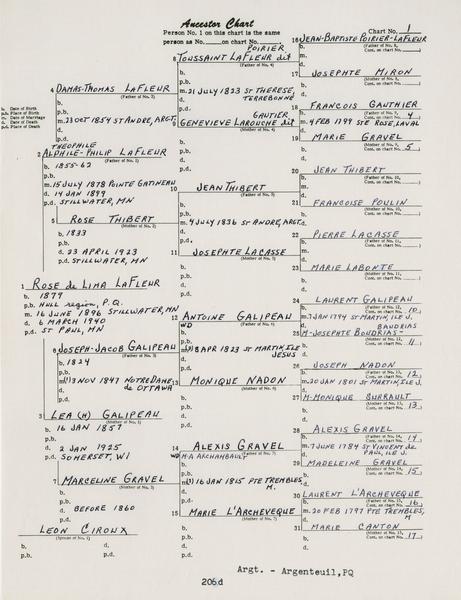 Ancestor Chart
Person No. 1 on this chart is the same
person as No. ___ on chart No. ___
Chart No. 1
b. Date of Birth
p.b. Place of Birth
m. Date of Marriage
d. Date of Death
p.d. Place of Death
16 JEAN-BAPTISTE POIRIER-LAFLEUR
(Father of No. 8,
Cont. on chart No. ___)
POIRIER
8 TOUSSAINT LAFLEUR dit
(Father of No. 4)
b.
p.b.
m. 21 JULY 1823 ST THERESE,
TERREBONNE
d.
p.d.
17 JOSEPHTE MIRON
(Mother of No. 8,
Cont. on chart No. ___)
4 DAMAS-THOMAS LAFLEUR
(Father of No. 2)
b.
p.b.
m. 23 OCT 1854 ST ANDRE, ARGT.
d.
p.d.
18 FRANCOIS GAUTHIER
(Father of No. 9,
Cont. on chart No. 4)
b.
m. 4 FEB 1799 STE ROSE, LAVAL
d.
GAUTIER
9 GENEVIEVE LAROUCHE dit
(Mother of No. 4)
b.
p.b.
d.
p.d.
19 MARIE GRAVEL
(Mother of No. 9,
Cont. on chart No. 5)
b.
d.
THEOPHILE
2 ALDHILE-PHILIP LAFLEUR
(Father of No. 1)
b. 1855-62
p.b.
m. 15 JULY 1878 POINTE GATINEAU
d. 14 JAN 1899
p.d. STILLWATER, MN
20 JEAN THIBERT
(Father of No. 10,
Cont. on chart No. ___)
b.
m.
d.
10 JEAN THIBERT
(Father of No. 5)
b.
p.b.
m. 4 JULY 1836 ST ANDRE, ARGT.
d.
p.d.
21 FRANCOISE POULIN
(Mother of No. 10,
Cont. on chart No. ___)
b.
d.
5 ROSE THIBERT
(Mother of No. 2)
b. 1833
p.b.
d. 23 APRIL 1923
p.d. STILLWATER, MN
22 PIERRE LACASSE
(Father of No. 11,
Cont. on chart No. ___)
b.
m.
d.
11 JOSEPHTE LACASSE
(Mother of No. 5)
b.
p.b.
d.
p.d.
23 MARIE LABONTE
(Mother of No. 11,
Cont. on chart No. ___)
b.
d.
1 ROSE de LIMA LAFLEUR
b. 1879
p.b. HULL region, P.Q.
m. 16 JUNE 1896 STILLWATER, MN
d. 6 MARCH 1940
p.d. ST PAUL, MN
24 LAURENT GALIPEAU
(Father of No. 12,
Cont. on chart No. 10)
b.
m. 7 JAN 1794 ST MARTIN, ILE J.
d.
12 ANTOINE GALIPEAU
(Father of No. 6)
WD
b.
p.b.
m. (1) 8 APR 1823 ST MARTIN, ILE
JESUS
d.
p.d.
BAUDRIAS
25 M-JOSEPHTE BOUDRIAS-
(Mother of No. 12,
Cont. on chart No. 11)
b.
d.
6 JOSEPH-JACOB GALIPEAU
(Father of No. 3)
b. 1824
p.b.
m. (1) 3 NOV 1847 NOTRE DAME
de OTTAWA
d.
p.d.
26 JOSEPH NADON
(Father of No. 13,
Cont. on chart No. 12)
b.
m. 20 JAN 1801 ST MARTIN, ILE J.
d.
13 MONIQUE NADON
(Mother of No. 6)
b.
p.b.
d.
p.d.
27 M-MONIQUE
(Mother of No. 13,
Cont. on chart No. 13)
b.
d.
3 LEA (H) GALIPEAU
(Mother of No. 1)
b. 16 JAN 1857
p.b.
d. 2 JAN 1925
p.d. SOMERSET, WI
28 ALEXIS GRAVEL
(Father of No. 14,
Cont. on chart No. 14)
b.
m. 7 JUNE 1784 ST VINCENT de
PAUL, ILE J.
d.
14 ALEXIS GRAVEL
(Father of No. 7)
WD M-A ARCHAMBAULT
b.
p.b.
m. (1) 16 JAN 1815 PTE TREMBLES,
M.
d.
p.d.
29 MADELEINE GRAVEL
(Mother of No. 14,
Cont. on chart No. 15)
b.
d.
7 MARCELINE GRAVEL
(Mother of No. 3)
b.
p.b.
d. BEFORE 1860
p.d.
30 LAURENT L'ARCHEVEQUE
(Father of No. 15,
Cont. on chart No. 16)
b.
m. 20 FEB 1797 PTE TREMBLES,
M.
d.
15 MARIE L'ARCHEVEQUE
(Mother of No. 7)
b.
p.b.
d.
p.d.
31 MARIE CANTON
(Mother of No. 15,
Cont. on chart No. 17)
b.
d.
LEON CIROUX
(Spouse of No. 1)
b. d.
p.b. p.d.
Argt. - Argenteuil, PQ
206d